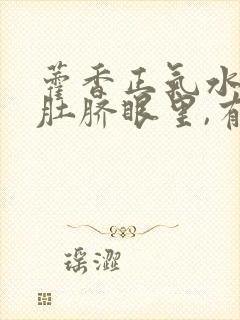 藿香正氣水
肚脐眼里,有
瑶澀